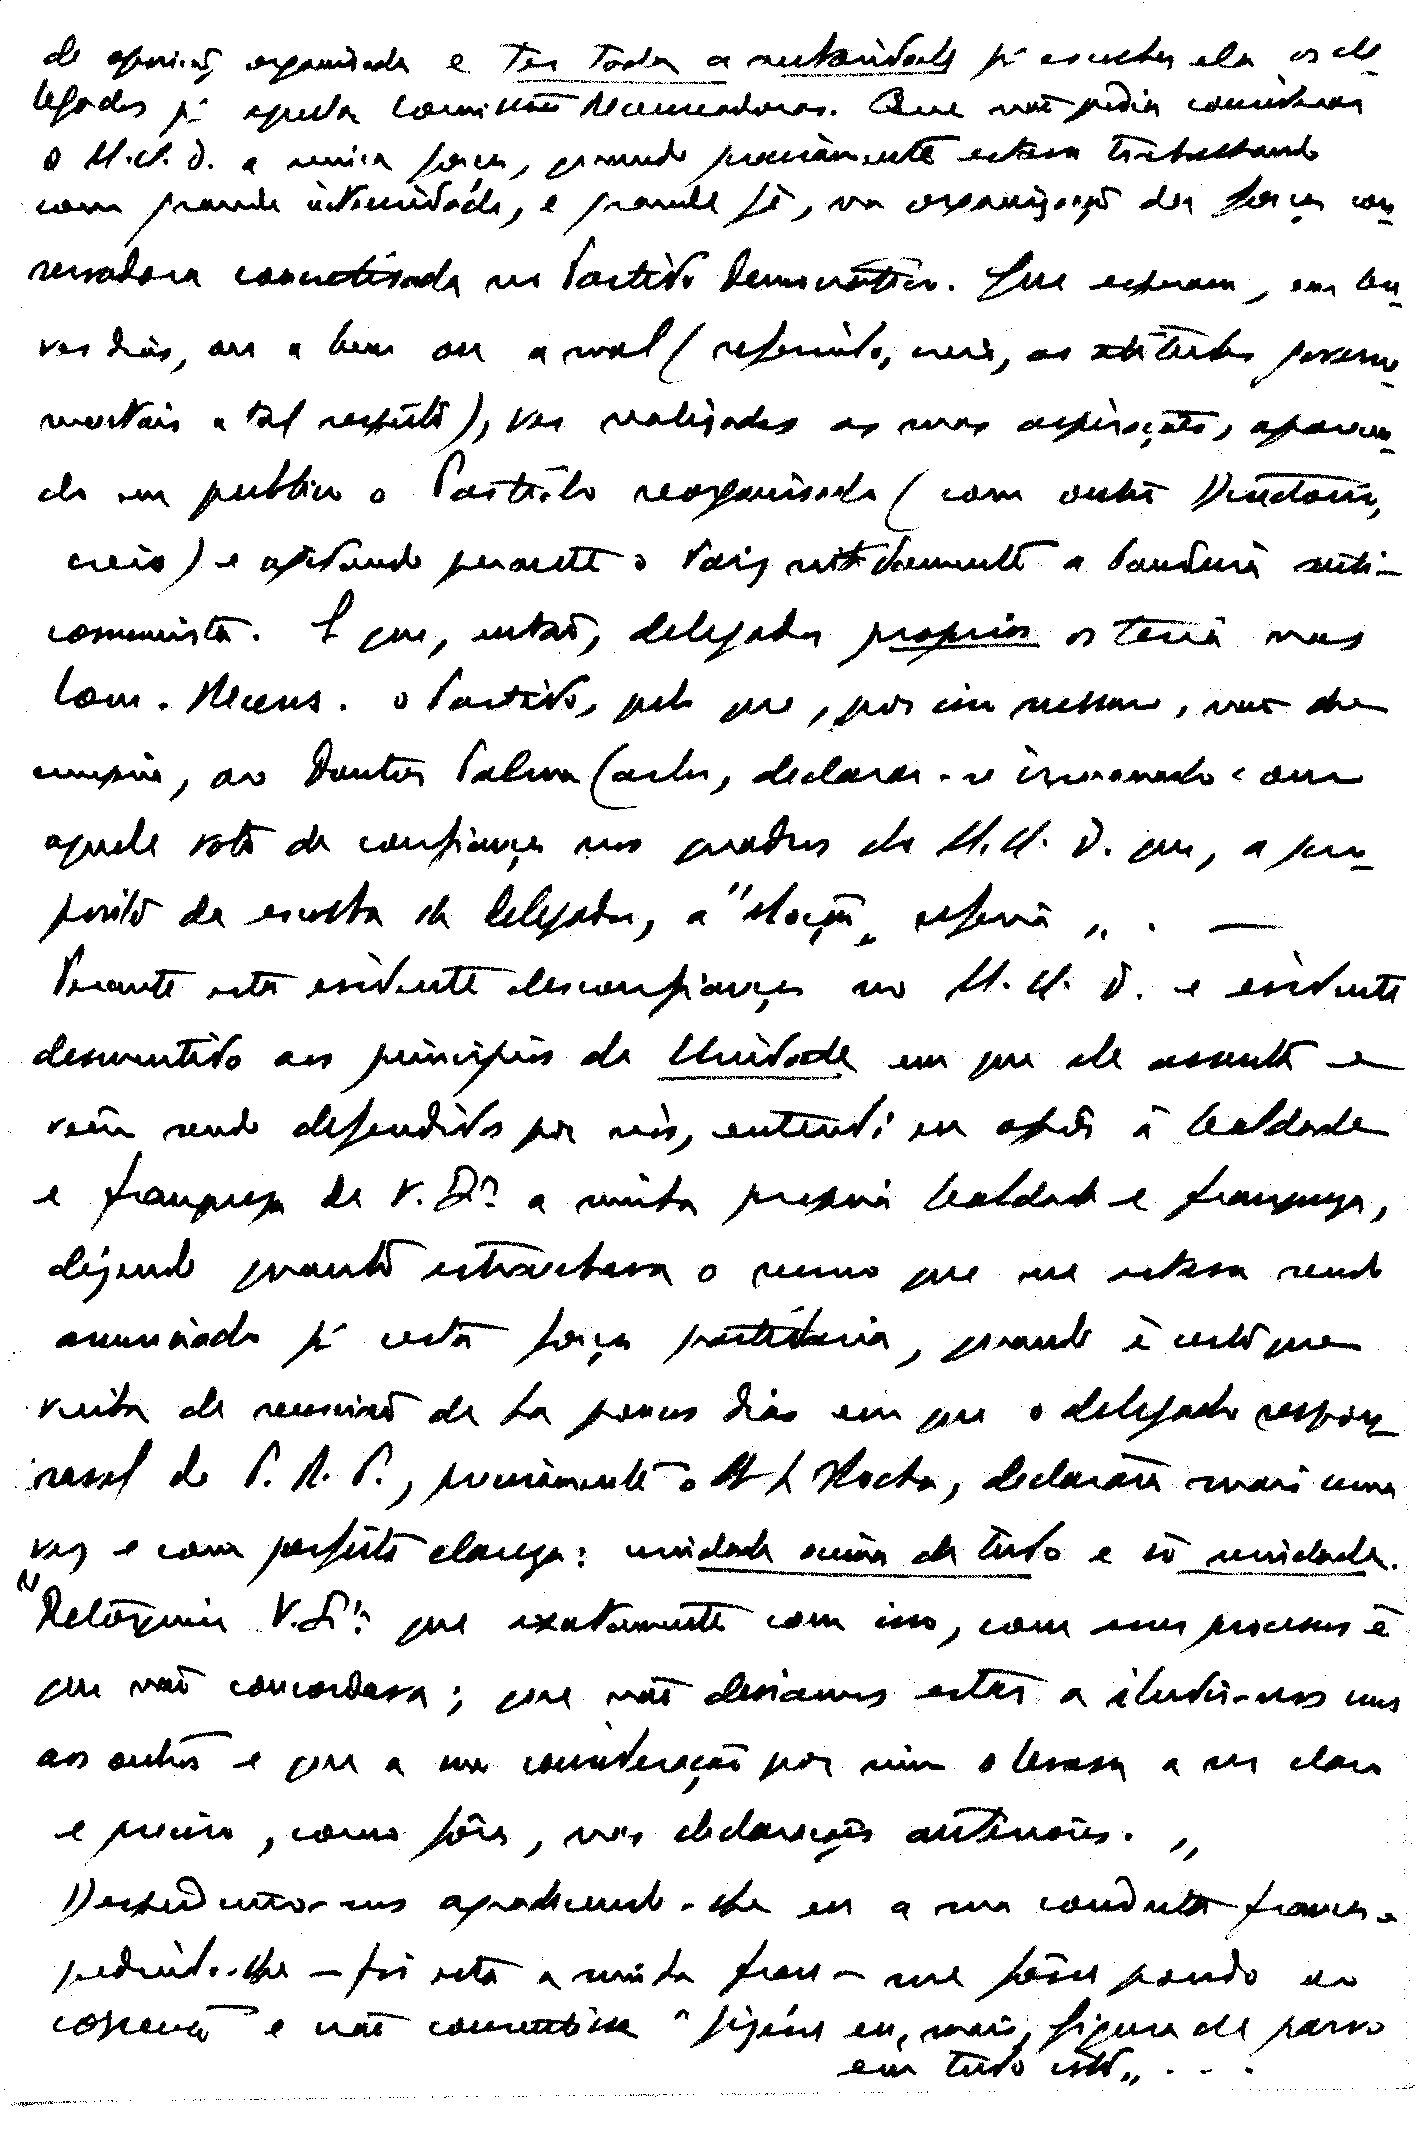 de oposição organisada e ter toda a autoridade p.ª escolher ela os de-
legados p.ª aquelas Comissões Recenseadoras. Que não podia considerar
o M.U.D. a unica força, quando precisamente estava trabalhando
com grande intensidade, e grande fé, na organização da força con-
servadora concretisada no Partido Democrático. Que esperava, em bre-
ves dias, ou a bem ou a mal (referindo, creio, as atitudes governa-
mentais a tal respeito), ver realizadas as suas aspirações, aparecen-
do em publico o Partido reorganisado (com outro Directorio,
creio) e agitando perante o Paiz nitidamente a bandeira anti-
comunista. E que, então, delegados proprios os teria nas
Com. Recens. o Partido, pelo que, por isso mesmo, não lhe
cumpria, ao Doutor Palma Carlos, declarar-se irmanado com
aquele voto de confiança nos quadros do M.U.D. que, a pro-
posito da escolha de delegados, a "Moção" referia". —
Perante esta evidente desconfiança no M.U.D. e evidente
desmentido aos principios de Unidade em que ele assenta e
veem sendo defendidos por nós, entendi eu opôr à lealdade
e franqueza de V. S.ª a minha propria lealdade e franqueza,
dizendo quanto estranhava o rumo que me estava sendo
anunciado p.ª esta força partidaria, quando é certo que
vinha de reunião de ha poucos dias em que o delegado respon-
savel do P.R.P., precisamente o Rocha, declarára mais uma
vez e com perfeita clareza: unidade acima de tudo e só unidade.
"Retorquiu V. S.ª que exatamente com isso, com esses processos é
que não concordava; que não deviamos estar a iludir-nos uns
aos outros e que a sua consideração por mim o levava a ser claro
e preciso, como fôra, nas declarações anteriores."
Despedimo-nos agradecendo-lhe eu a sua conduta franca e
pedindo-lhe – foi esta a minha frase – me fôsse pondo ao
corrente e não consentisse "fizésse eu, mais, figura de parvo
em tudo isto"...